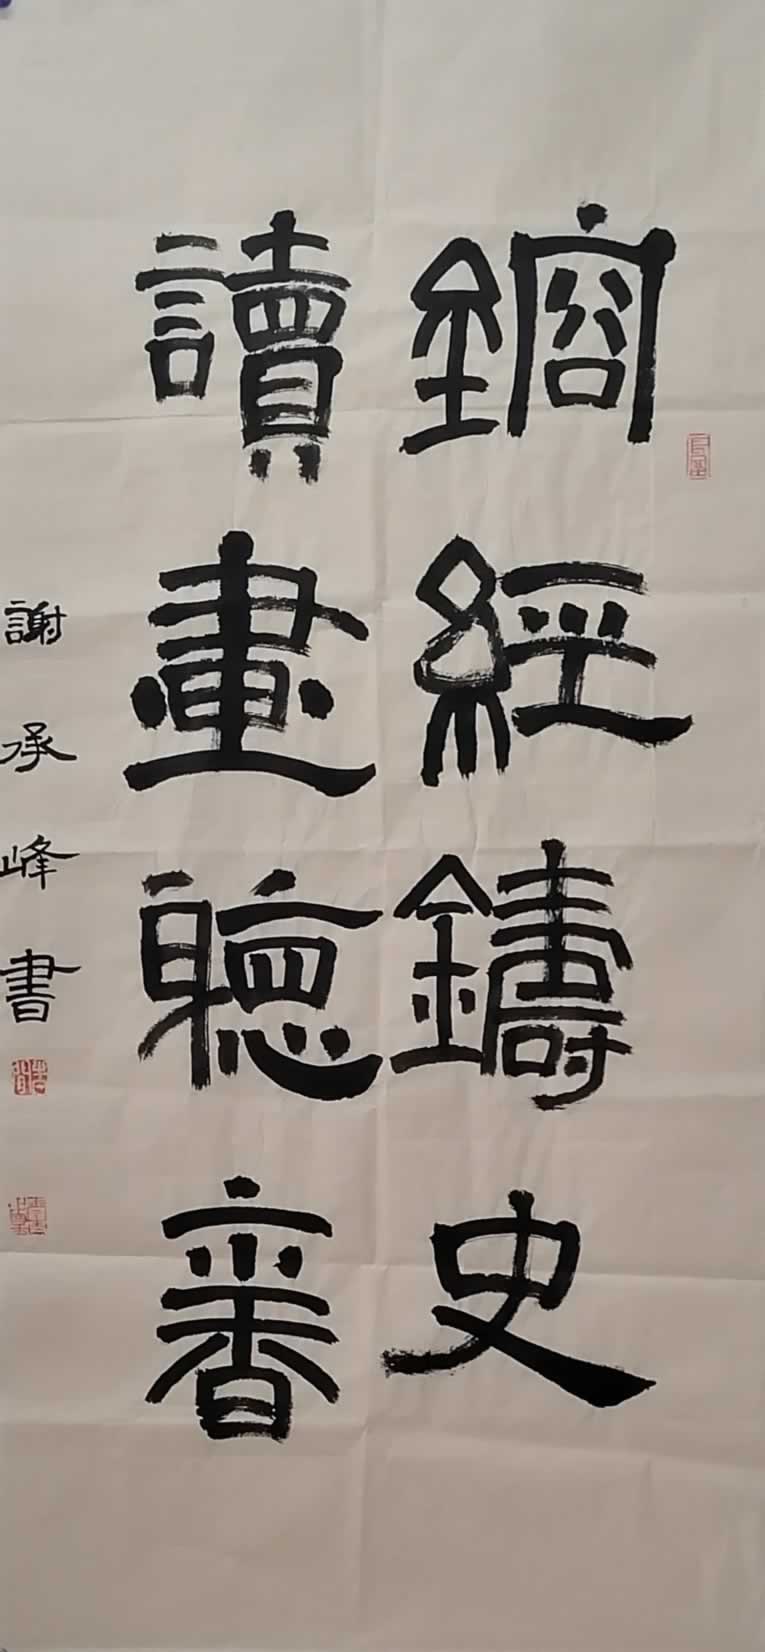 鎔經鑄史
讀畫聽香
謝承峰書